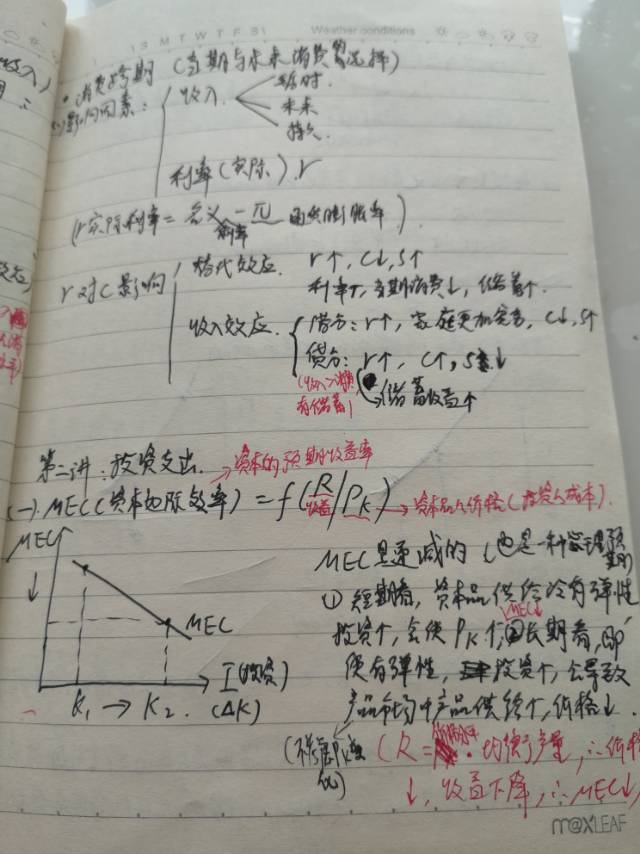 13 M T W T F S
Weather conditions
消费跨期 (当期与未来消费选择)
影响因素:
收入
暂时
未来
持久
利率(实际) r
(r实际利率 = 名义利率 - π 通货膨胀率).
r对C影响
替代效应. r↑, C↓, S↑
利率↑, 当期消费↓, 储蓄↑.
收入效应.
借方: r↑, 家庭更加贫穷, C↓, S↑
贷方: r↑, C↑, S↓
有储蓄
→储蓄收益↑
第二讲: 投资支出. →资本的预期收益率
(一) MEC(资本边际效率) = f(R/PK) →资本品价格(投资成本).
收益
MEC
↓
MEC
I(投资)
K1 → K2. (ΔK)
MEC是递减的 (也是一种
① 短期看, 资本品供给没有弹性
MEC↓
投资↑, 会使PK↑, ②长期看, 即
使有弹性, 投资↑, 会导致
产品市场中产品供给↑, 价格↓.
(R = 均衡产量, ∴价格
↓, 收益下降, ∴MEC↓,
m@XLEAF